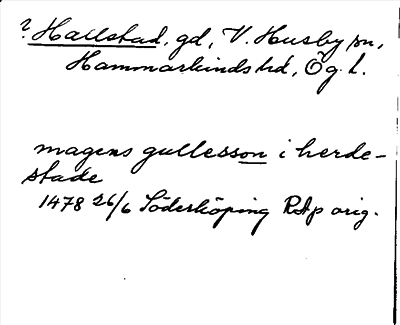 ? Hallstad, gd, V. Husby sn,
Hammarkinds hd, Ög. l.
magens gullesson i herde-
stade
1478 26/6 Söderköping RAp orig.